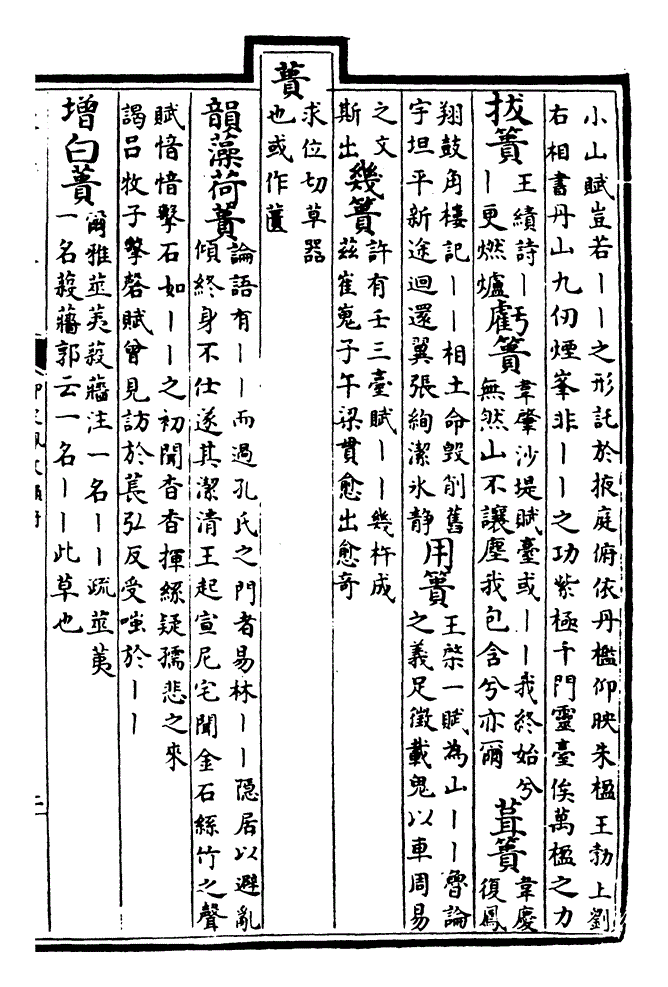 小山賦豈若丨丨之形託於掖庭俯依丹檻仰映朱楹王勃上劉
右相書丹山九仞煙峯非丨丨之功紫極千門靈臺俟萬楹之力
拔簣
王績詩丨
丨更燃爐
虧簣
韋肇沙堤賦臺或丨丨我終始兮
無然山不讓塵我包含兮亦爾
葺簣
韋慶
復鳳
翔鼓角樓記丨丨相土命毀削舊
宇坦平新途迴還翼張絢潔氷静
用簣
王棨一賦為山丨丨魯論
之義足徵載鬼以車周易
之文
斯出
幾簣
許有壬三臺賦丨丨幾杵成
茲崔嵬子午梁貫愈出愈奇
蕢
求位切草器
也或作
韻藻荷蕢
論語有丨丨而過孔氏之門者易林丨丨隱居以避亂
傾終身不仕遂其潔清王起宣尼宅聞金石絲竹之聲
賦愔愔擊石如丨丨之初聞杳杳揮絲疑孺悲之來
謁呂牧子擊磬賦曾見訪於萇弘反受嗤於丨丨
增白蕢
爾雅莁荑蔱蘠注一名丨丨疏莁荑
一名蔱蘠郭云一名丨丨此草也